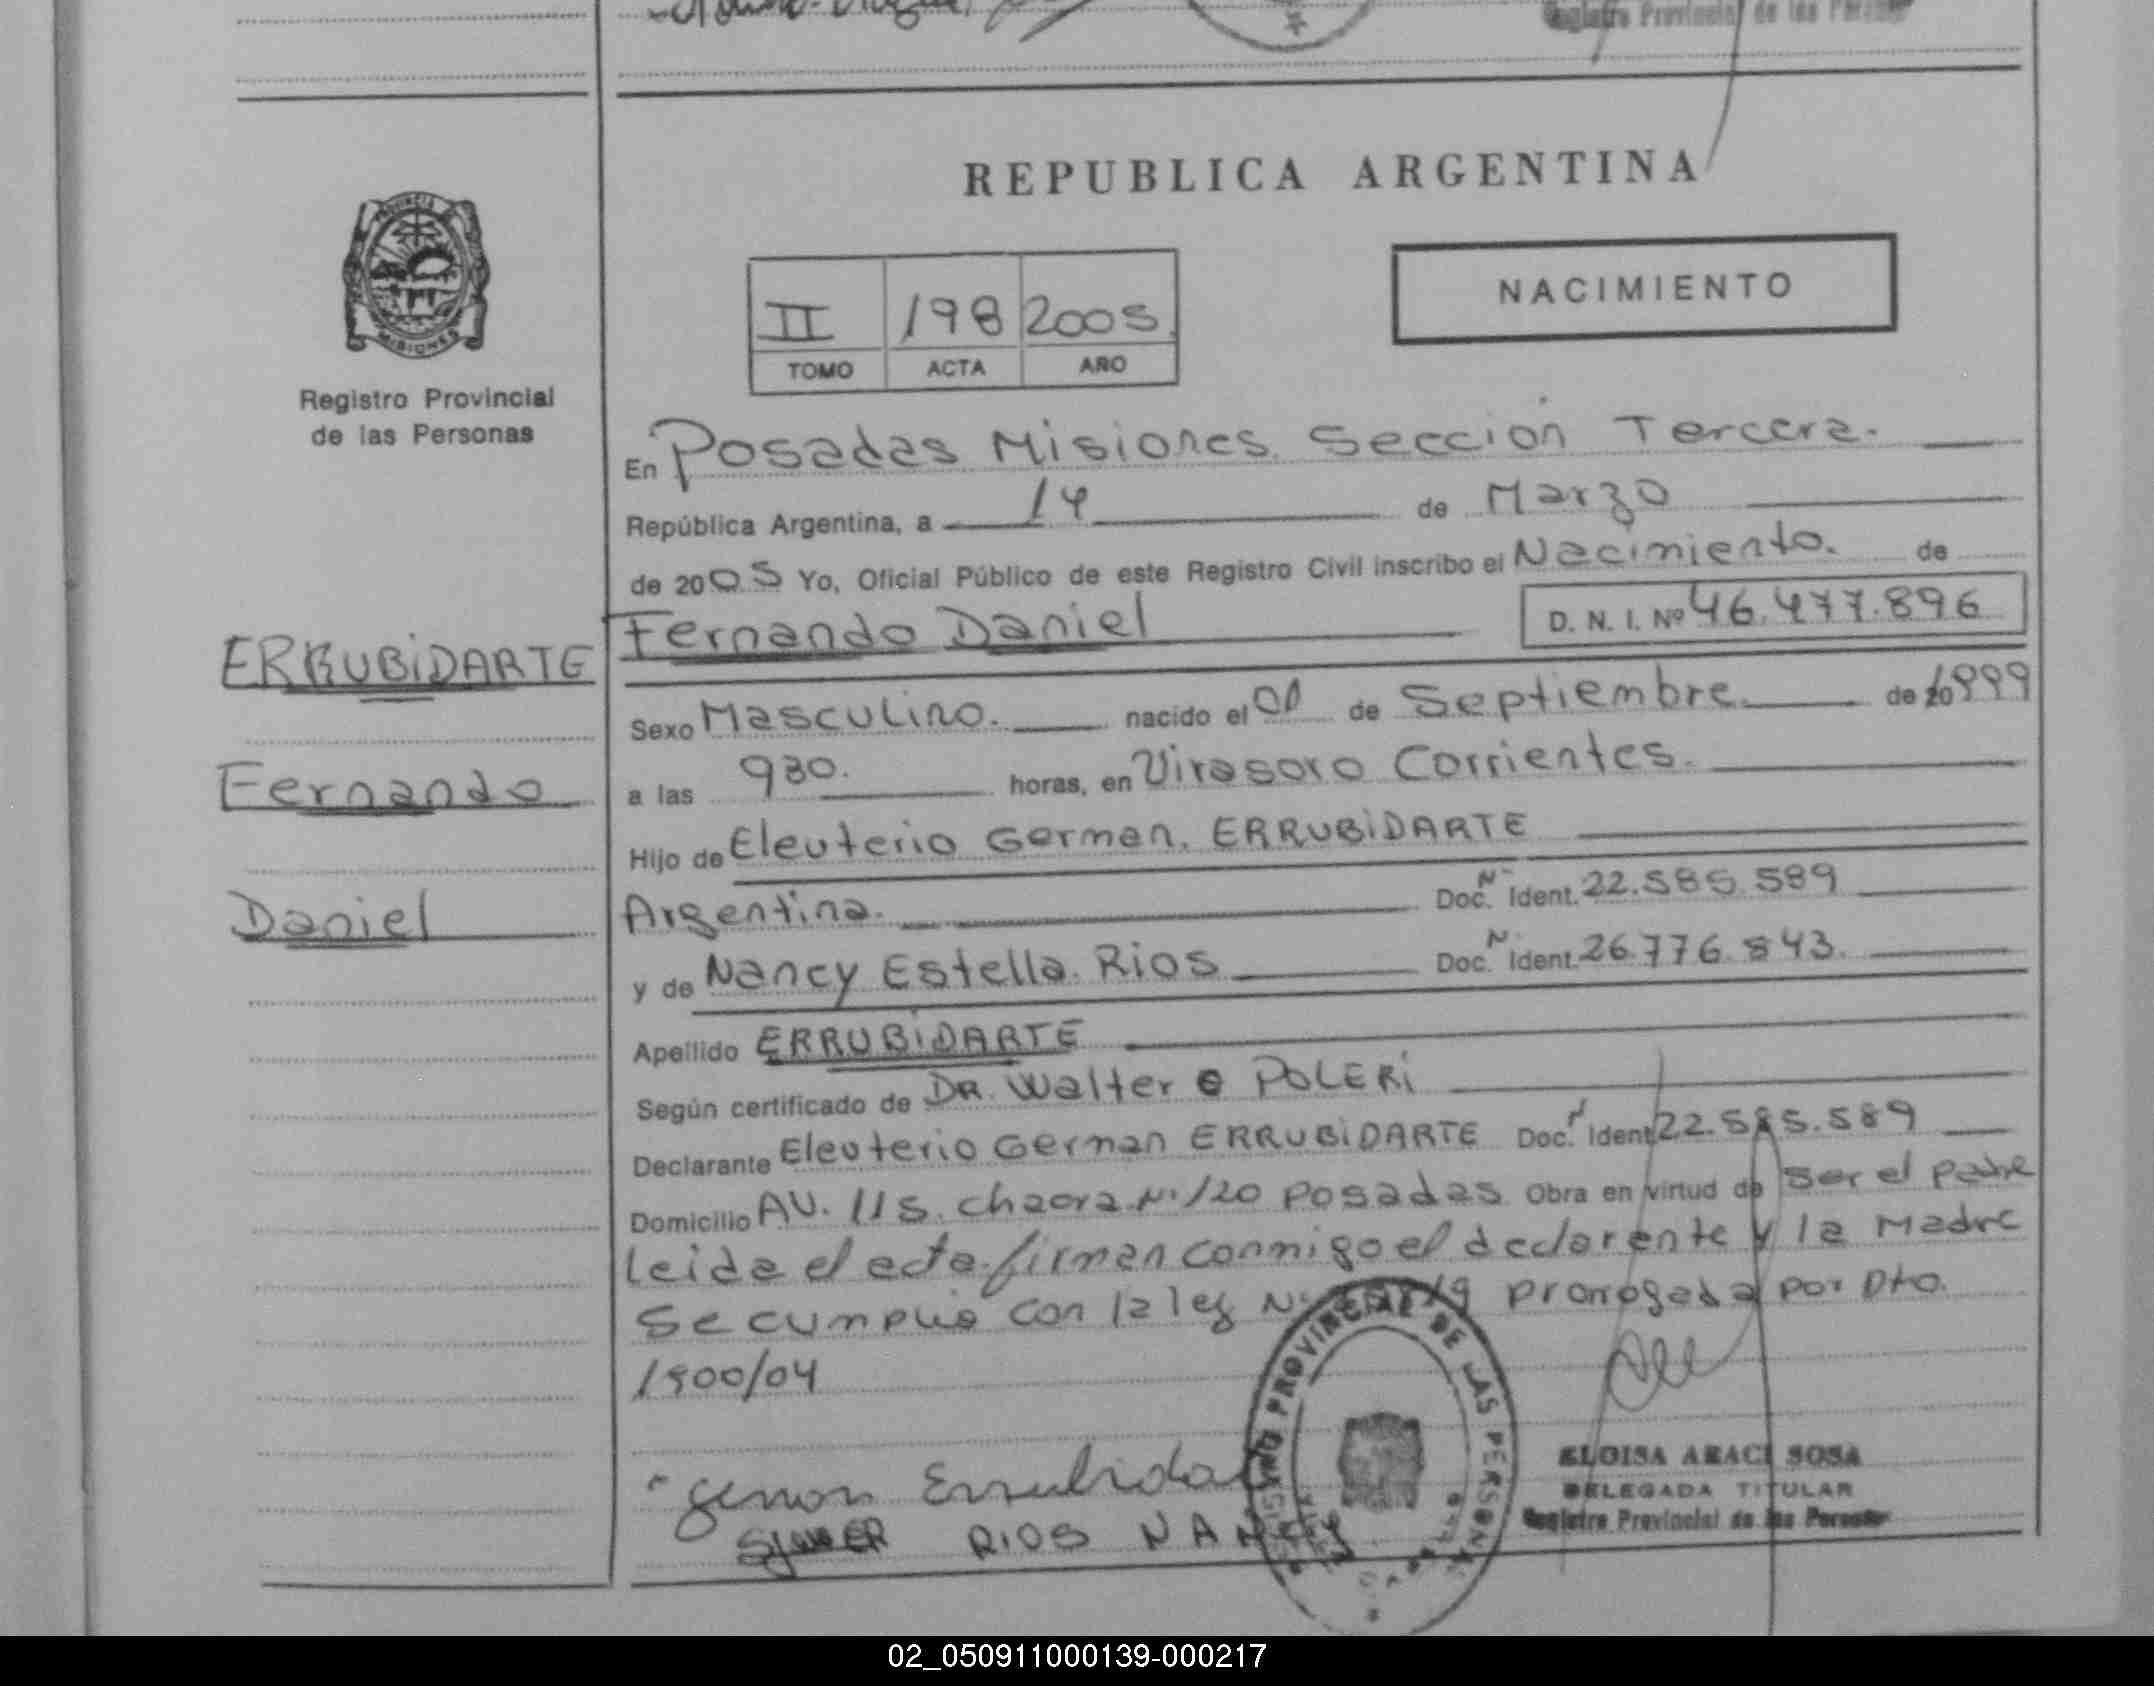 REPUBLICA ARGENTINA
PROVINCIA DE
MISIONES
Registro Provincial
de las Personas
NACIMIENTO
II 198 2005
TOMO ACTA AÑO
En Posadas Misiones Seccion Tercera.
República Argentina, a 14 de Marzo
de 2005 Yo, Oficial Público de este Registro Civil inscribo el Nacimiento. de
Fernando Daniel D. N. I. Nº 46.477.896
ERRUBiDARTE
Fernando
Daniel
Sexo Masculino. nacido el 01 de Septiembre de 1999
a las 930. horas, en Virasoro Corrientes.
Hijo de Eleuterio German. ERRUBiDARTE
Argentina. Doc. N Ident. 22.585.589
y de Nancy Estella Rios Doc. N Ident. 26.776.843.
Apellido ERRUBiDARTE
Según certificado de DR. Walter POLERi
Declarante Eleuterio German ERRUBiDARTE Doc. N Ident 22.585.589
Domicilio AV. 115. chacra N. 120 Posadas Obra en virtud de ser el padre
Leida el acta firman conmigo el declarante y la Madre
Se cumplio con la ley N. prorrogada por Dto.
1900/04
German
RIOS NANCY
REGISTRO PROVINCIAL DE LAS PERSONAS
ELOISA ARACI SOSA
DELEGADA TITULAR
Registro Provincial de las Personas
02_050911000139-000217